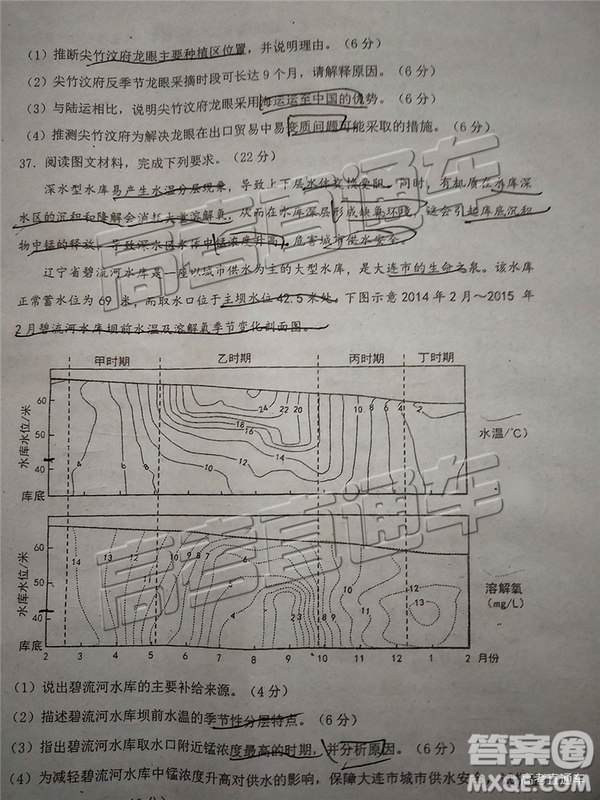 (1) 推断尖竹汶府龙眼主要种植区位置，并说明理由。(6 分)
(2) 尖竹汶府反季节龙眼采摘时段可长达 9 个月，请解释原因。(6 分)
(3) 与陆运相比，说明尖竹汶府龙眼采用海运运至中国的优势。(6 分)
(4) 推测尖竹汶府为解决龙眼在出口贸易中易变质问题可能采取的措施。(6 分)
37. 阅读图文材料，完成下列要求。(22 分)
深水型水库易产生水温分层现象，导致上下层水体交换受阻。同时，有机质在水库深
水区的沉积和降解会消耗大量溶解氧，从而在水库深层形成缺氧环境，这会引起库底沉积
物中锰的释放，导致深水区水体中锰浓度升高，危害城市供水安全。
辽宁省碧流河水库是一座以城市供水为主的大型水库，是大连市的生命之泉。该水库
正常蓄水位为 69 米，而取水口位于主坝水位 42.5 米处。下图示意 2014 年 2 月～2015 年
2 月碧流河水库坝前水温及溶解氧季节变化剖面图。
甲时期 乙时期 丙时期 丁时期
水库水位/米
60
50
40
库底
4 6 10 12 14 16 18 20 22 24 10 8 6 4 2
水温/℃
水库水位/米
60
50
40
库底
14 13 12 11 10 9 8 7 6 5 4 3 2 10 11 12 13
溶解氧
(mg/L)
2 3 4 5 6 7 8 9 10 11 12 1 2 月份
(1) 说出碧流河水库的主要补给来源。(4 分)
(2) 描述碧流河水库坝前水温的季节性分层特点。(6 分)
(3) 指出碧流河水库取水口附近锰浓度最高的时期，并分析原因。(6 分)
(4) 为减轻碧流河水库中锰浓度升高对供水的影响，保障大连市城市供水安全
高考直通车
答案圈
MXQE.COM
高考直通车